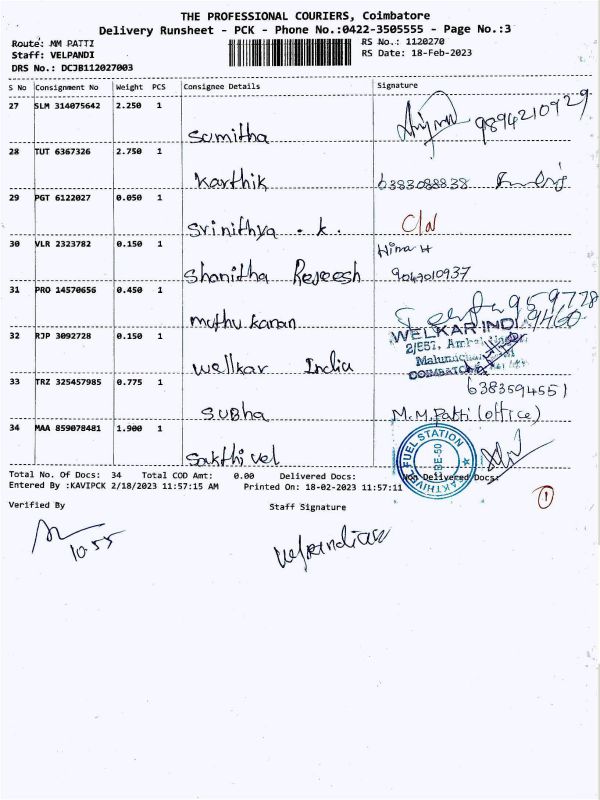 THE PROFESSIONAL COURIERS, Coimbatore
Delivery Runsheet - PCK - Phone No.:0422-3505555 - Page No.:3
Route: MM PATTI
RS No.: 1120270
Staff: VELPANDI
RS Date: 18-Feb-2023
DRS No.: DCJB112027003
S No Consignment No Weight PCS Consignee Details Signature
27 SLM 314075642 2.250 1
Sumitha 9894210929
28 TUT 6367326 2.750 1
Karthik 6383088838
29 PGT 6122027 0.050 1
Srinithya . k. C/N
30 VLR 2323782 0.150 1
Shanitha Rejeesh 9049010937
31 PRO 14570656 0.450 1
muthu karan 959778
9460
32 RJP 3092728 0.150 1
WELKAR INDI
2/557,
COIMBATO
Wellkar India
33 TRZ 325457985 0.775 1
6383594551
SUBha M.M.Patti (office)
34 MAA 859078481 1.900 1
FUEL STATION
Sakthivel
Total No. Of Docs: 34 Total COD Amt: 0.00 Delivered Docs: Non Delivered Docs:
Entered By :KAVIPCK 2/18/2023 11:57:15 AM Printed On: 18-02-2023 11:57:11
1
Verified By Staff Signature
10.55